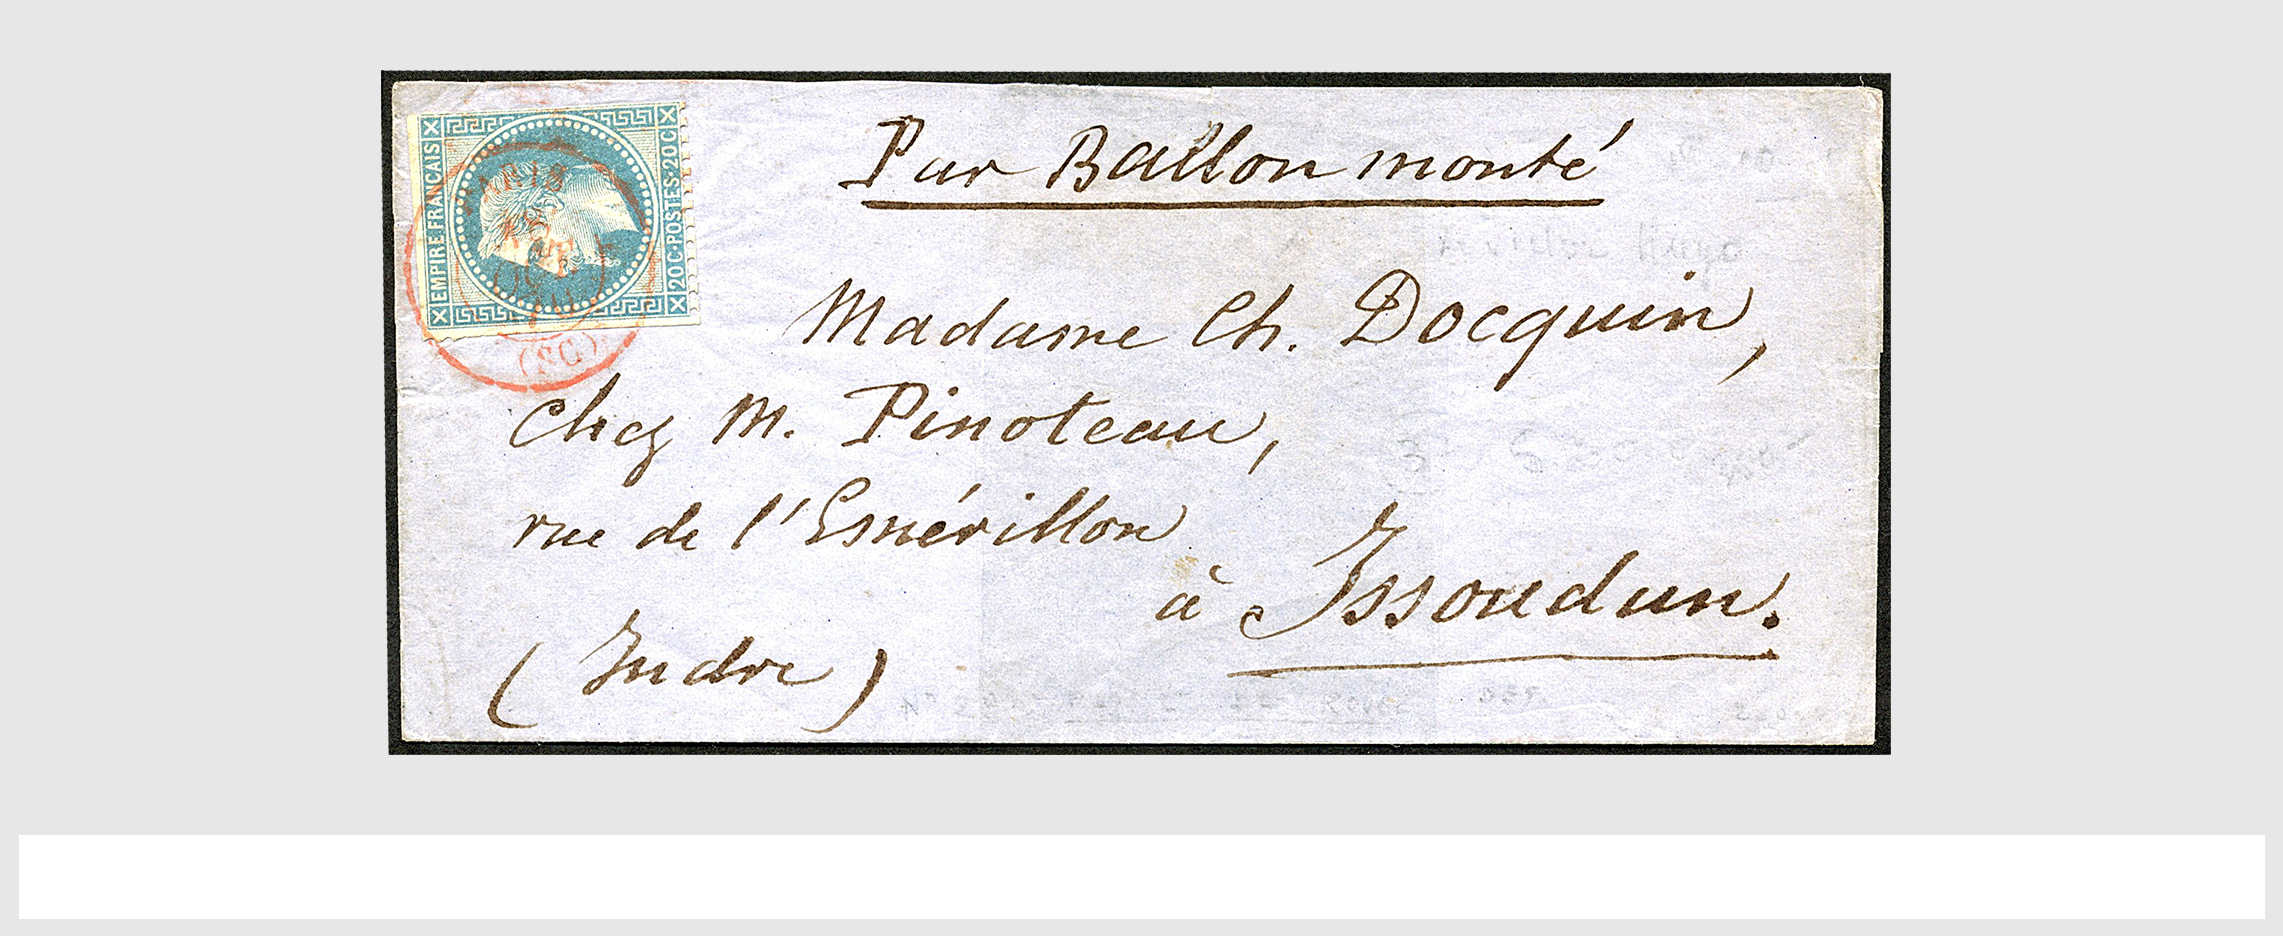 EMPIRE FRANCAIS
20 C · POSTES · 20 C
PARIS
(SC)
Par Ballon monté
Madame Ch. Docquin,
Chez M. Pinoteau,
rue de l'Esmérillon
à Issoudun.
(Indre)